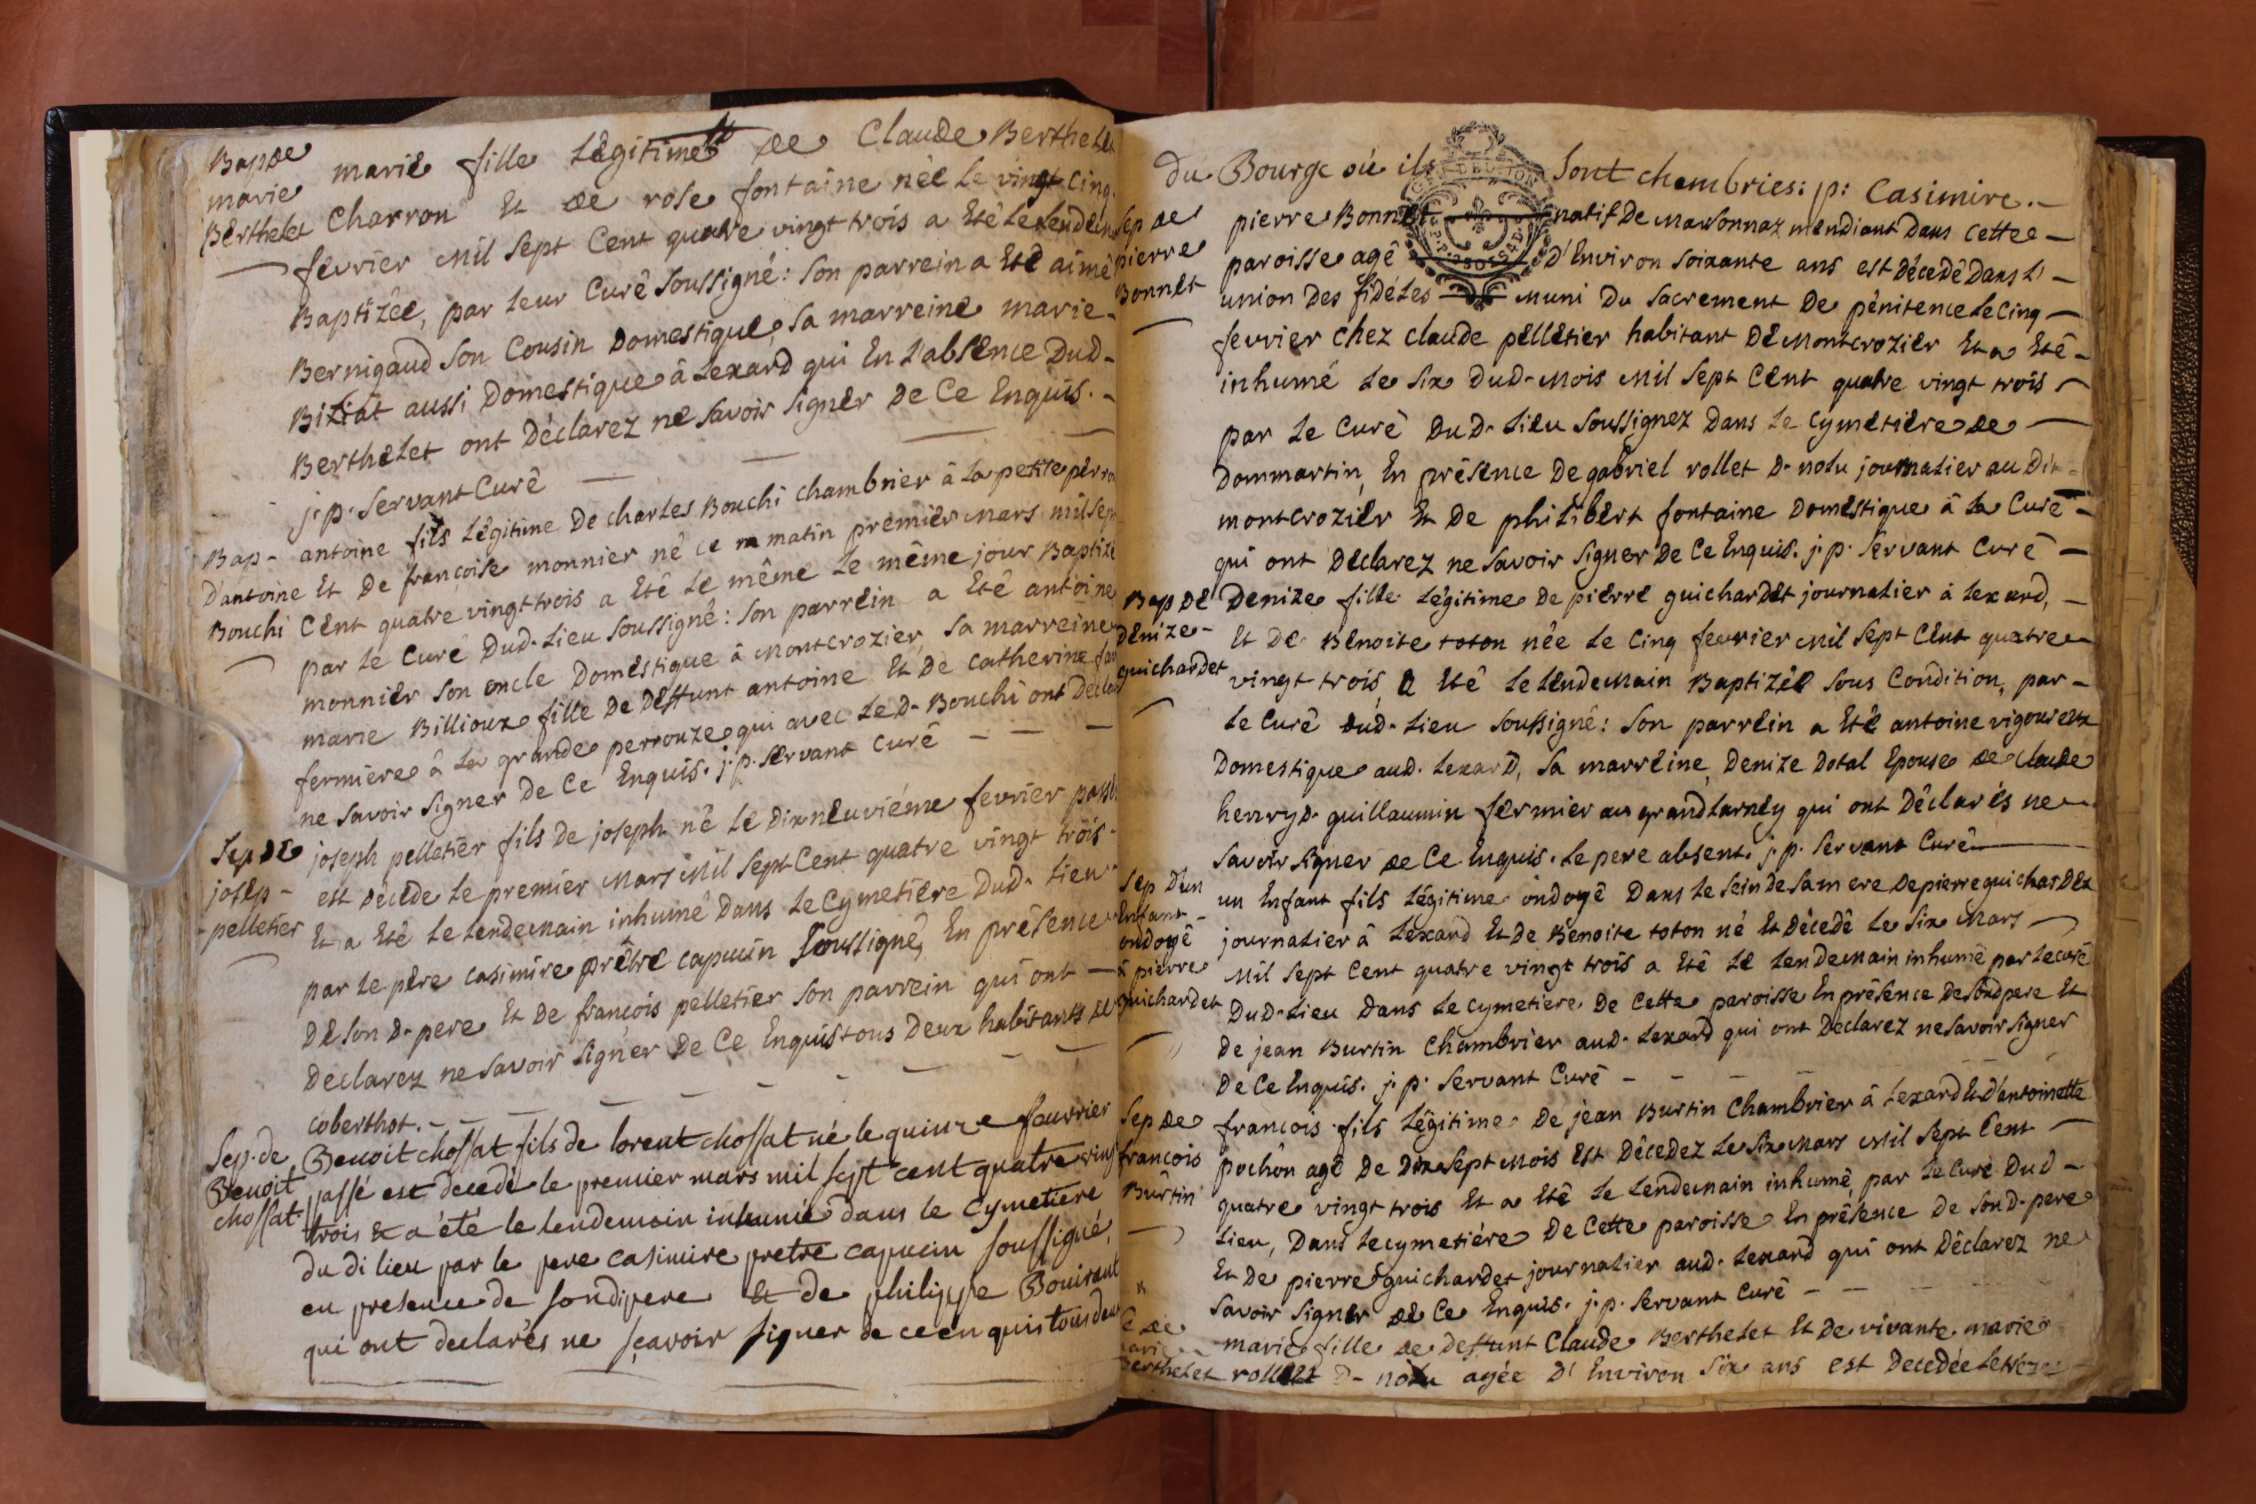 Bap de
marie
Berthelet
marie fille Légitime de Claude Berthelet
Charron Et de rose fontaine née Le vingt Cinq
fevrier Mil Sept Cent quatre vingt trois a Eté Le Lendem
Baptizée, par Leur Curé Soussigné: Son parrein a Eté aimé
Bernigaud Son Cousin Domestique, Sa marreine marie
Biziat aussi Domestique â Lexard qui En L'absence Dud-
Berthelet ont Déclarez ne Savoir Signer De Ce Enquis.
j. p. Servant Curé
Bap-
D'antoine
Bouchi
antoine fils Légitime De charles Bouchi chambrier â La petite perro
Et De françoise monnier né ce m matin premier Mars mil Sep
Cent quatre vingt trois a Eté Le même Le même jour Baptizé
par Le Curé Dud. Lieu Soussigné: Son parrein a Eté antoine
monnier Son oncle Domestique â Montcrozier, Sa marreine
marie Billioux fille De Deffunt antoine Et De catherine
fermiere â La grande perrouze qui avec Le d. Bouchi ont Déclar
ne Savoir Signer De Ce Enquis. j. p. Servant Curé
Sep de
josep-
pelletier
joseph pelletier fils De joseph né Le Dixneuviéme fevrier passé
est Décédé Le premier Mars Mil Sept Cent quatre vingt trois
Et a Eté Le Lendemain inhumé Dans Le Cymetiére Dud. Lieu
par Le pére casimire prêtre capucin Soussigné, En présence
De Son D. pere Et De françois pelletier Son parrein qui ont
Declarez ne Savoir Signer De Ce Enquis tous Deux habitants de
coberthot.
Sep. de
Benoit
chossat
Benoit chossat fils de lorent chossat né le quinze feuvrier
passé est decedé le premier mars mil sept cent quatre vingt
trois & a été le lendemain inhumé dans le Cymetiere
du di lieu par le pere casimire pretre capucin soussigné,
en presence de sondipere & de philippe Bouirant
qui ont declarés ne sçavoir signer de ce enquis tous deux
du Bourge ou ils Sont chambries: p: Casimire.
Sep de
pierre
Bonnet
pierre Bonnet natif De Marsonnaz mendiant Dans cette
paroisse agé D'Environ Soixante ans est Décedé Dans L'
union Des fidéles muni Du Sacrement De pénitence Le Cinq
fevrier chez claude pelletier habitant De Montcrozier Et a Eté
inhumé Le Six Dud. Mois Mil Sept Cent quatre vingt trois
par Le Curé Dud. Lieu Soussignez Dans Le Cymetiere de
Dommartin, En présence De gabriel rollet D. notu journalier au Dit
montcrozier Et De philibert fontaine Domestique â La Cure
qui ont Déclarez ne Savoir Signer De Ce Enquis. j. p. Servant Curé
Bap De
Denize-
guichardet
Denize fille Légitime De pierre guichardet journalier â Lexard,
Et De Benoite toton née Le Cinq fevrier Mil Sept Cent quatre
vingt trois, a Eté Le Lendemain Baptizée Sous Condition, par
Le Curé Dud. Lieu Soussigné: Son parrein a Eté antoine vigoureux
Domestique aud. Lexard, Sa marreine, Denize Dotal Epouse de claude
henry D. guillaumin fermier au grand tarney qui ont Déclarés ne
Savoir Signer de Ce Enquis. Le pere absent. j. p. Servant Curé
Sep D'un
Enfant
ondoyé
â pierre
guichardet
un Enfant fils Légitime ondoyé Dans Le Sein de Sa mere De pierre guichardet
journalier â Lexard Et De Benoite toton né Et Décedé Le Six Mars
Mil Sept Cent quatre vingt trois a Eté Le Lendemain inhumé par Le curé
Dud. Lieu Dans Le Cymetiere De Cette paroisse En présence De Sond pere Et
De jean Burtin Chambrier aud. Lexard qui ont Declarez ne Savoir Signer
De Ce Enquis. j. p. Servant Curé
Sep de
francois
Burtin
francois fils Légitime De jean Burtin Chambrier â Lexard Et d'antoinette
pochon agé De Dix Sept Mois Est Décedez Le Six Mars Mil Sept Cent
quatre vingt trois Et a Eté Le Lendemain inhumé, par Le Curé Dud
Lieu, Dans Le cymetiére De Cette paroisse En présence De Son D. pere
Et De pierre guichardet journalier aud. Lexard qui ont Déclarez ne
Savoir Signer de Ce Enquis. j. p. Servant Curé
Berthelet
marie fille de deffunt Claude Berthelet Et De vivante marie
rollet D- notu agée D'Environ Six ans est Decedée Le